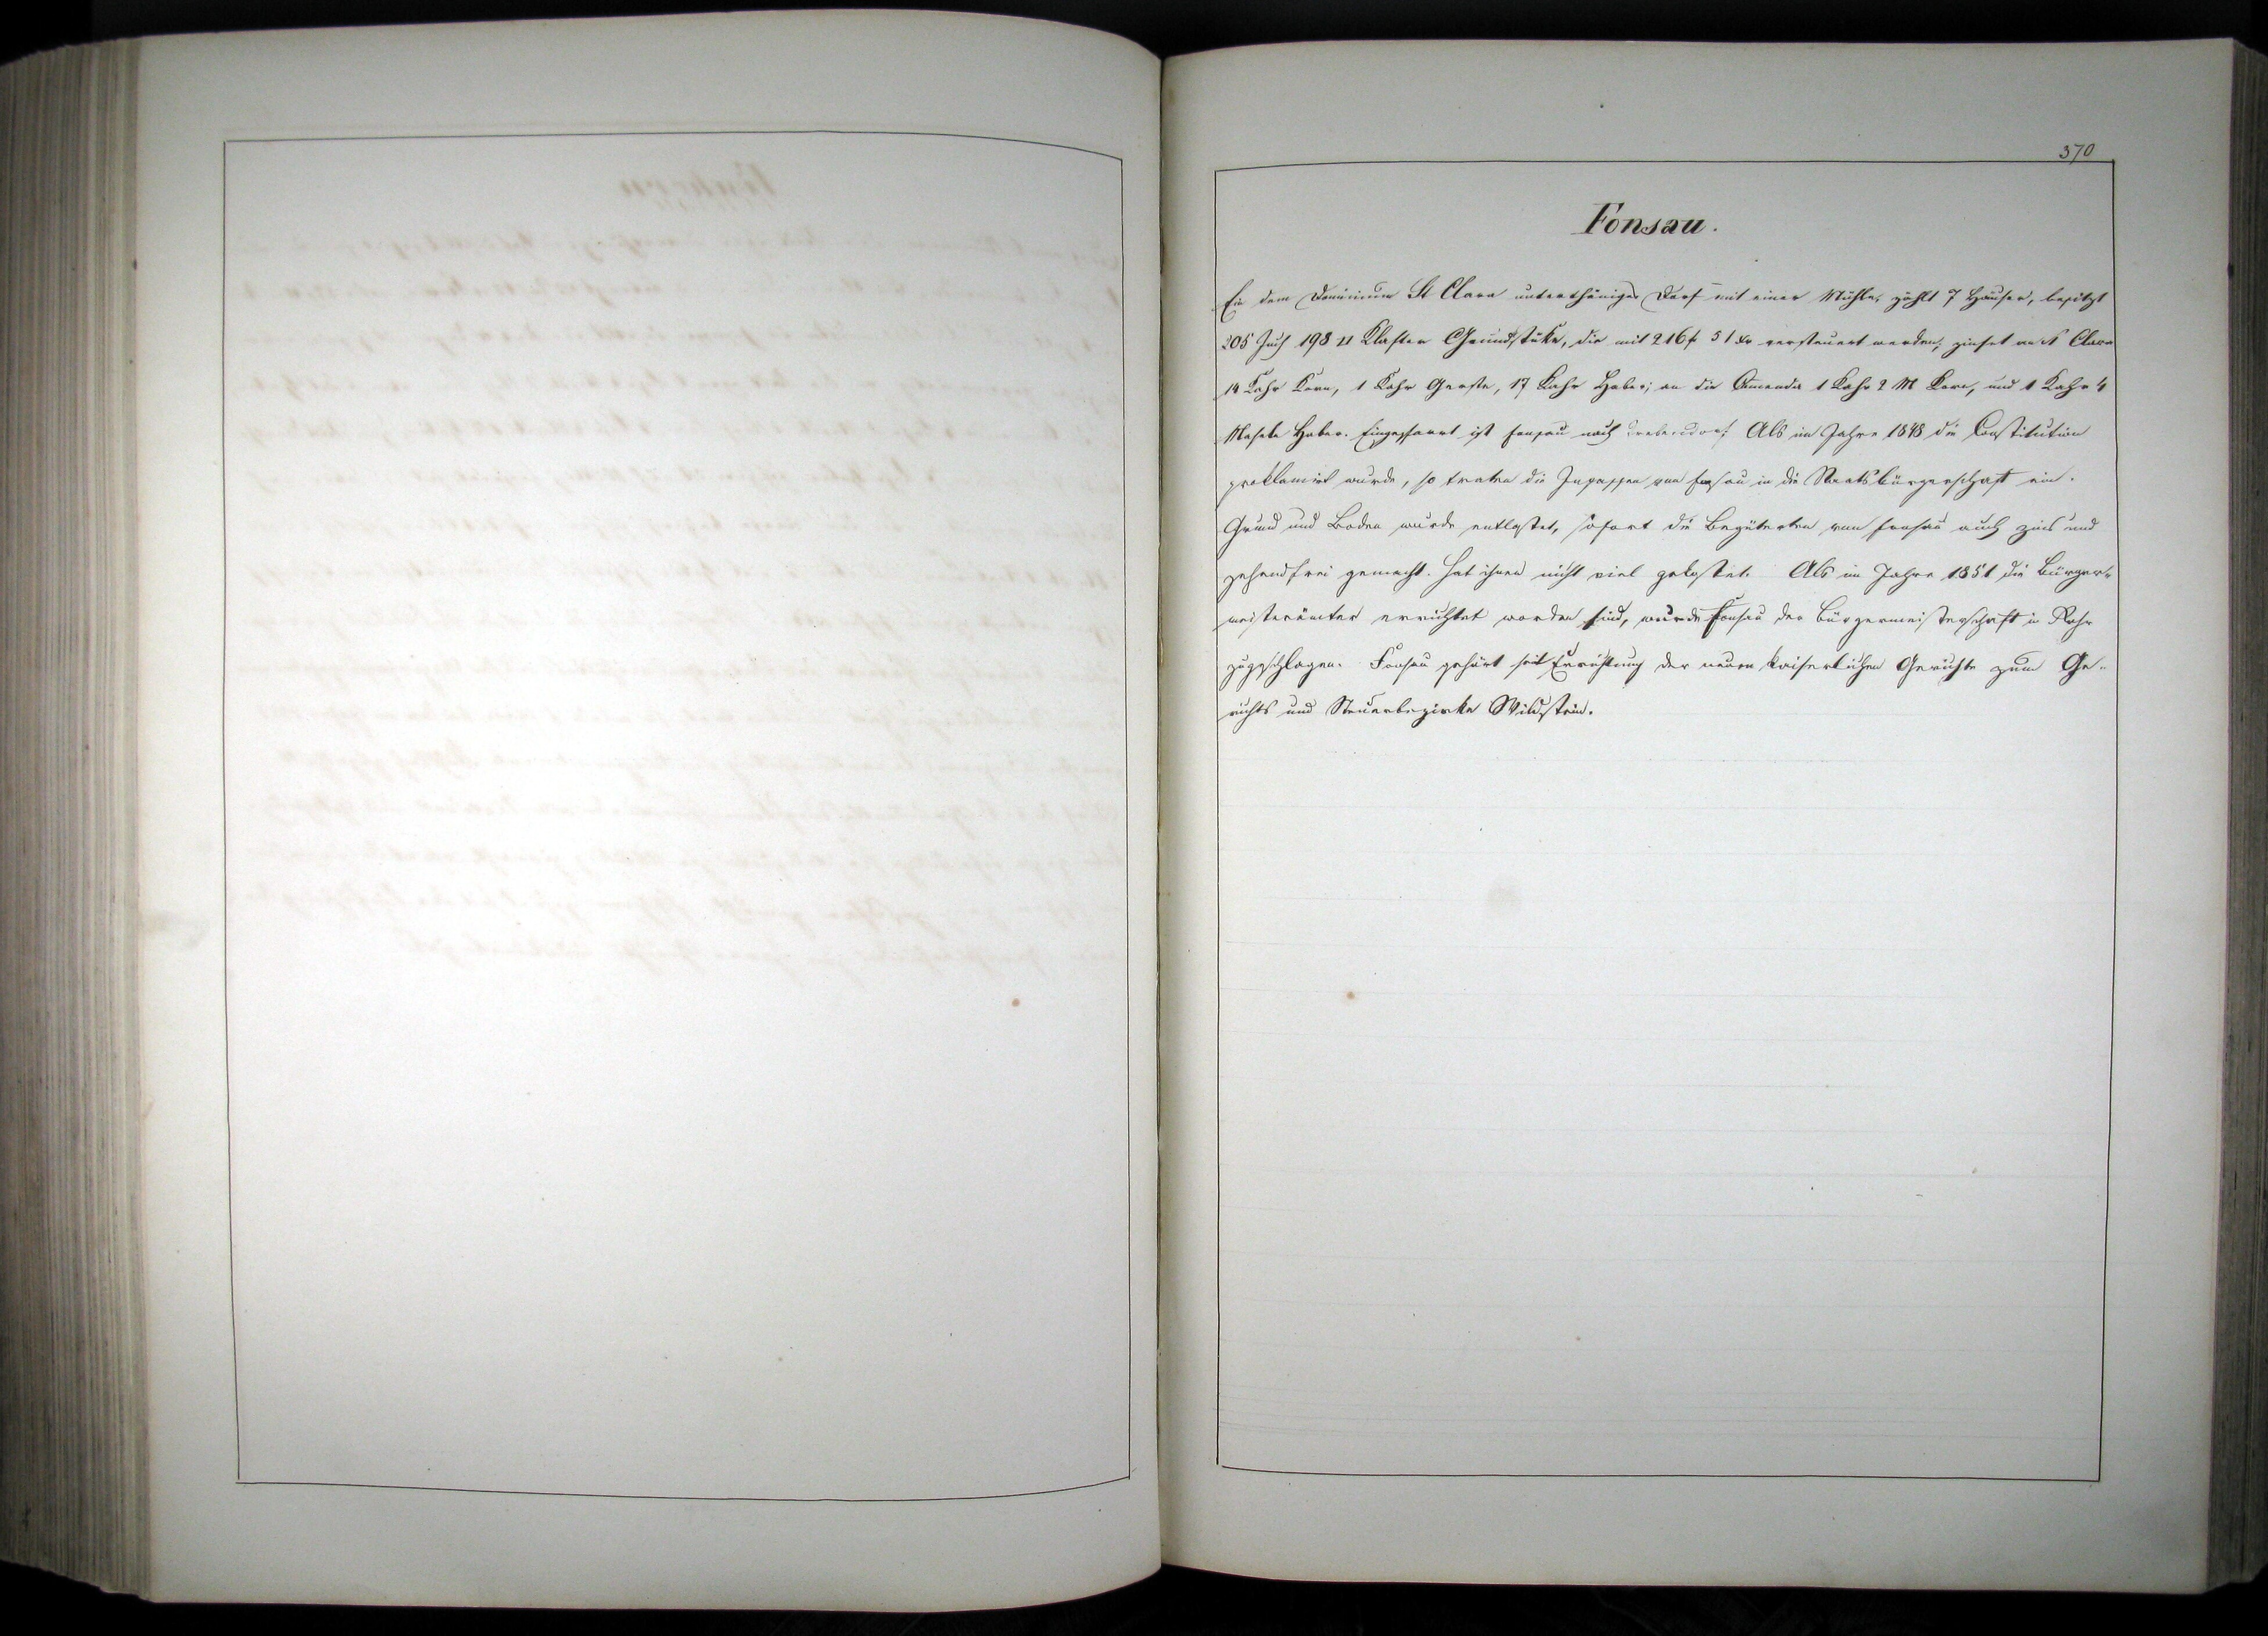 370
Fonsau.
Ein dem Dominium St Clara unterthäniges Dorf mit einer Mühle, zählt 7 Häuser, besitzt
205 Juch 198 □ Klafter Grundstüke, die mit 216 f 51 xr versteuert werden, zinset an St Clara
14 Kahr Korn, 1 Kahr Gerste, 17 Kahr Haber; an die Comenda 1 Kahr 2 M Korn, und 1 Kahr 4
Maseln Haber. Eingepfarrt ist Fonsau nach Trebendorf Als im Jahre 1848 die Constitution
proklamirt wurde, so traten die Insassen von Fonsau in die Staatsbürgerschaft ein.
Grund und Boden wurde entlastet, sofort die Begüterten von Fonsau auch zins und
zehendfrei gemacht. Hat ihnen nicht viel gekostet. Als im Jahre 1851 die Bürger-
meisterämter errichtet worden sind, wurde Fonsau der Bürgermeisterschaft in Rohr
zugeschlagen. Fonsau gehört seit Errichtung der neuen kaiserlichen Gerichte zum Ge-
richts und Steuerbezirke Wildstein.